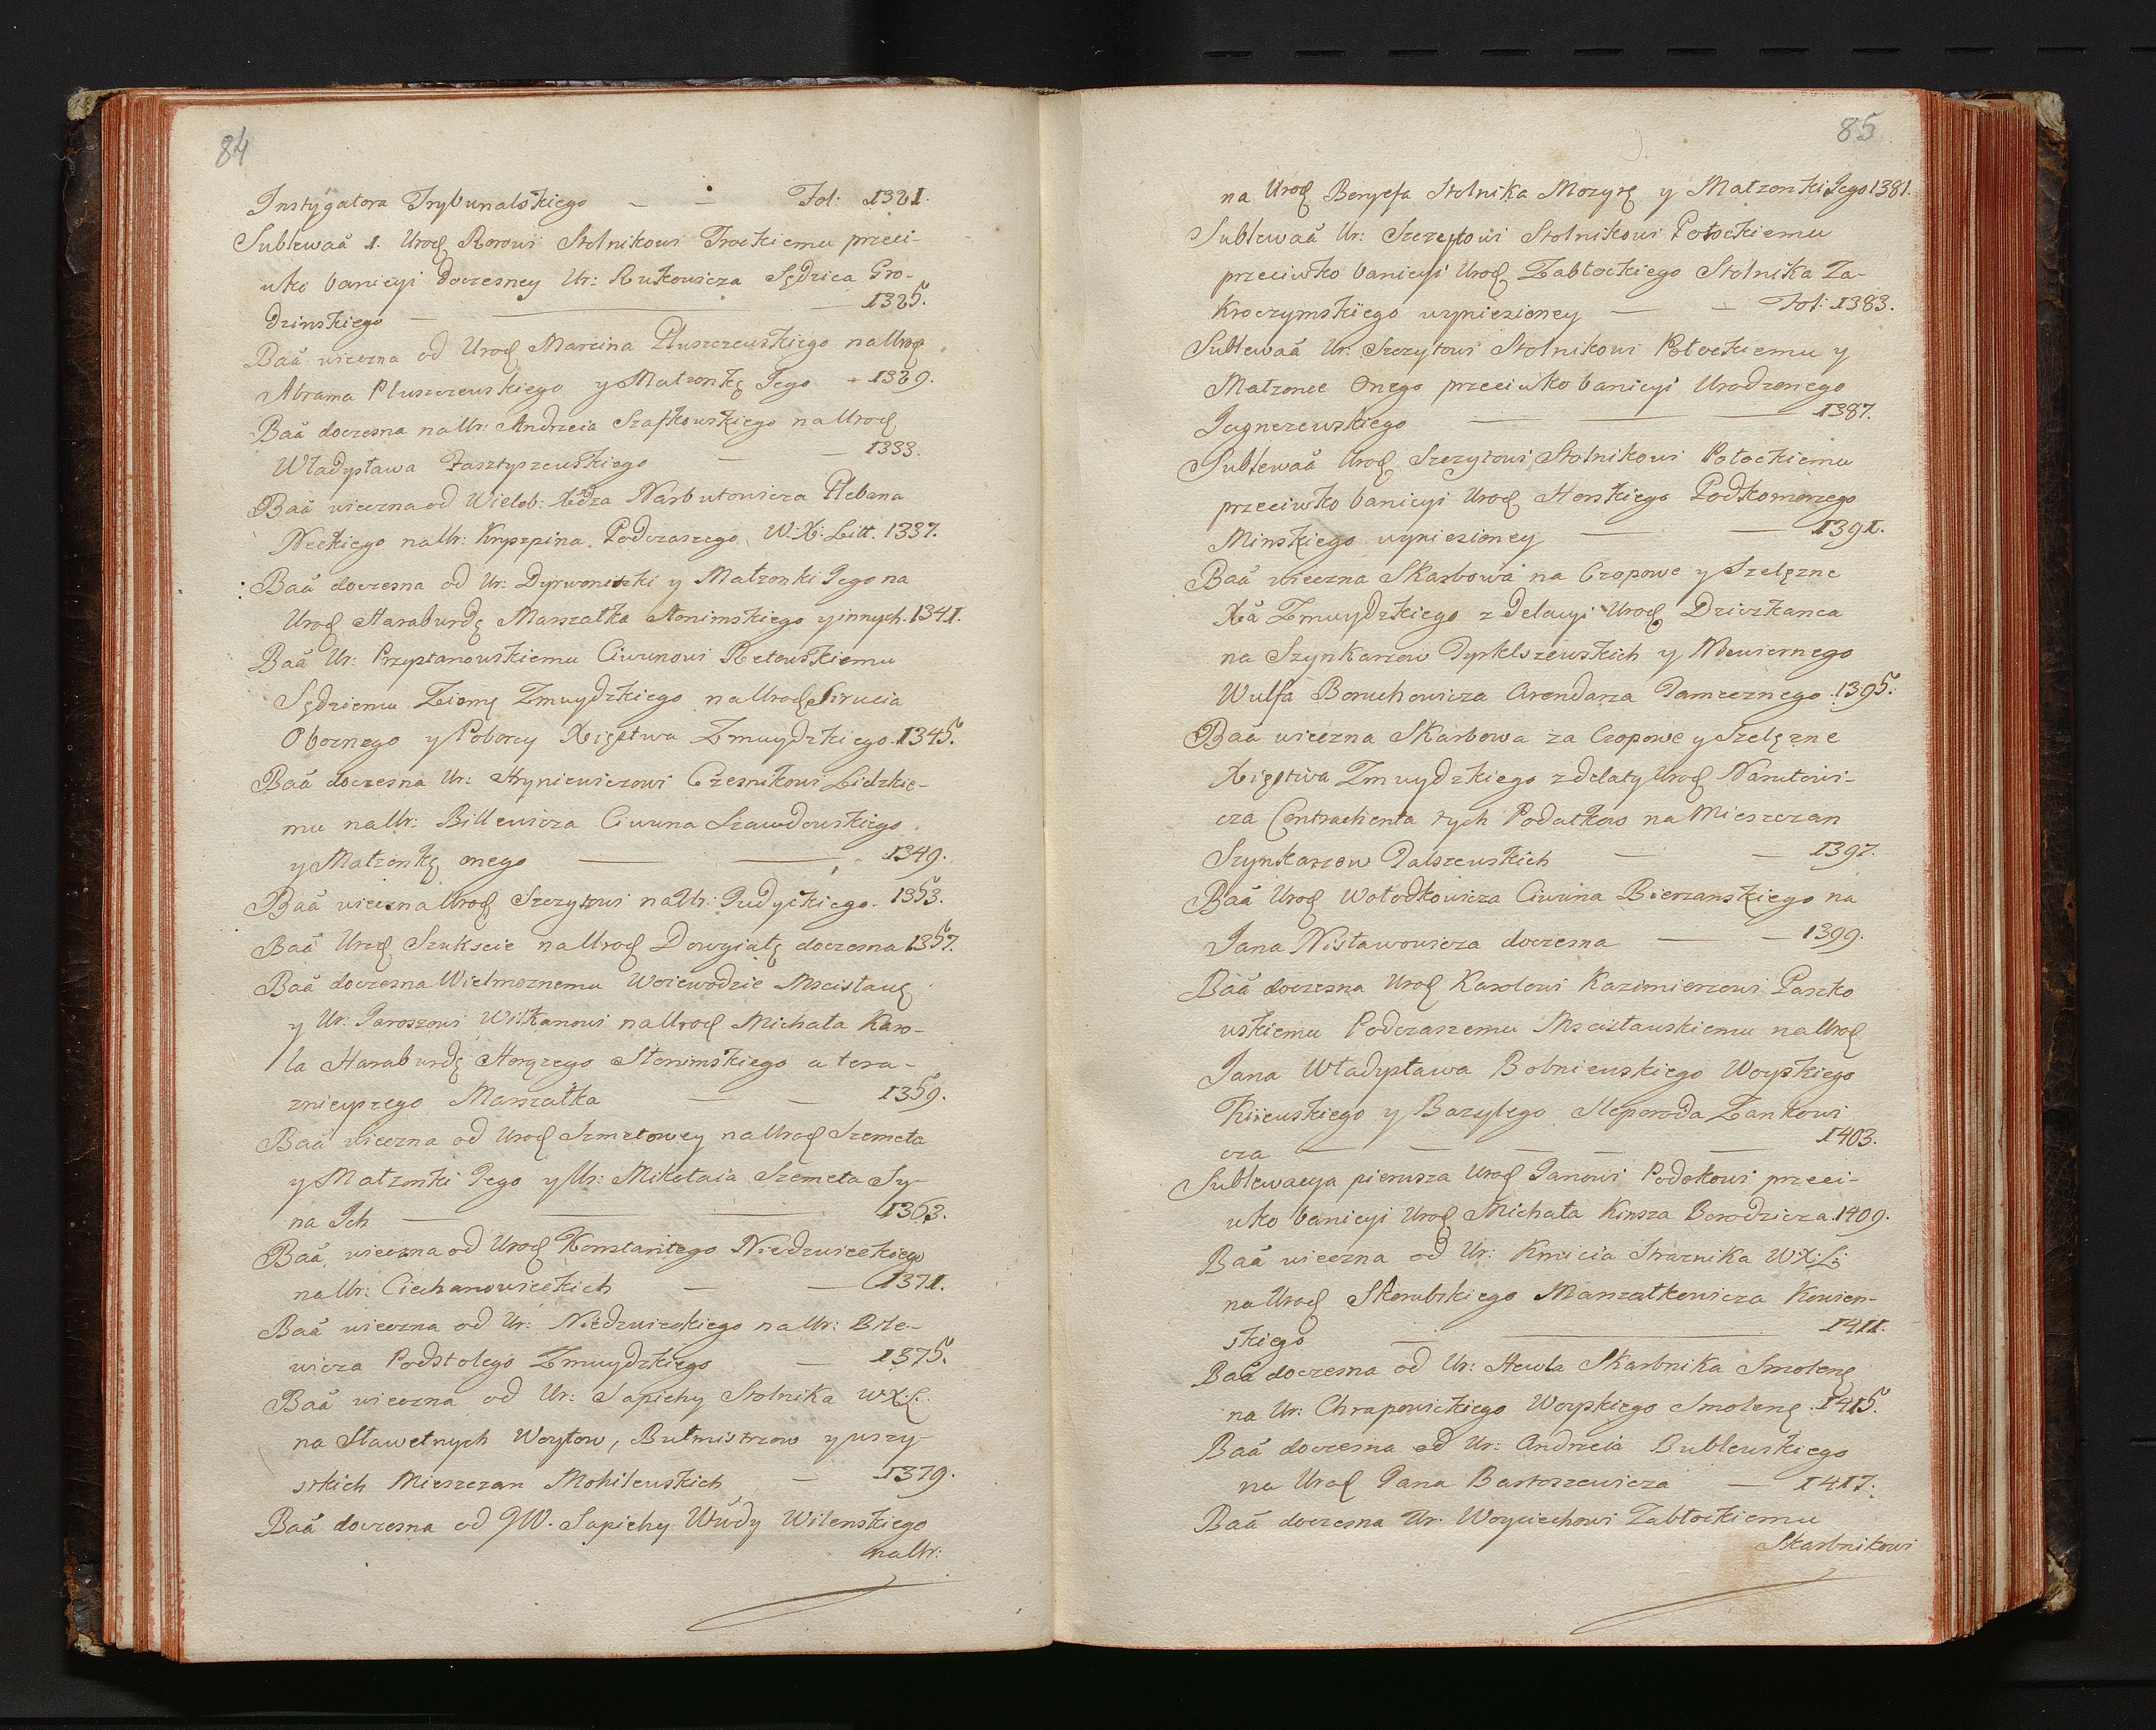 84
Instygatora Trybunalskiego — — Fol: 1321.
Sublewaã 1. Urod Rorowi Stolnikowi Trockiemu przeci-
wko banicyi doczesney Ur: Rutkowicza Sędzica Gro-
dzinskiego — — 1325.
Baã wieczna od Urod Marcina Pluszczewskiego na Urod
Abrama Pluszczewskiego y Matzonkę Jego - 1329.
Baã doczesna na Ur: Andrzeia Szafkowskiego na Urod
Władysława Łasztyszewskiego — — 1333.
Baã wieczna od Wieleb: Xdza Narbutowicza Plebana
Neckiego na Ur: Kryszpina Podczaszego W: X: Litt. 1337.
Baã doczesna od Ur: Dyrwoniszki y Matzonki Jego na
Urod Haraburdę Marszałka Słonimskiego y innych. 1341.
Baã Ur: Przystanowskiemu Ciwunowi Retewskiemu
Sędziemu Ziemę Zmuydzkiego na Urod Girucia
Oboznego y Poborcy Xięstwa Zmuydzkiego. 1345.
Baã doczesna Ur: Hryniewiczowi Czesnikowi Lidzkie-
mu na Ur: Billewicza Ciwuna Szawdowskiego
y Matzonkę onego — — 1349.
Baã wieczna Urod Szczytowi na Ur: Judyckiego. 1353.
Baã Urod Szukscie na Urod Dowgiałę doczesna 1357.
Baã doczesna Wielmoznemu Woiewodzie Mscisławę
y Ur: Jaroszowi Wilkanowi na Urod Michała Karo-
la Haraburdę Horęzego Słonimskiego a tera-
znieyszego Marszałka — — 1359.
Baã wieczna od Urod Szmetowey na Urod Szemeta
y Matzonki Jego y Ur: Mikołaia Szemeta Sy-
na Ich — — — 1363.
Baã wieczna od Urod Konstantego Niedzwieckiego
na Ur: Ciechanowieckich — — 1371.
Baã wieczna od Ur: Niedzwieckiego na Ur: Bile-
wicza Podstolego Zmuydzkiego — 1375.
Baã wieczna od Ur: Sapiehy Stolnika W X: L:
na Sławetnych Woytow, Butmistrzow y wszy-
stkich Mieszczan Mohilewskich — 1379.
Baã doczesna od JW. Sapiehy Wwdy Wilenskiego
na Ur:
85
na Urod Stolnika Mozyrę y Matzonki Jego 1381.
Sublewaã Ur: Szczytowi Stolnikowi Połockiemu
przeciwko banicyi Urod Zabłockiego Stolnika Za-
kroczymskiego wyniesioney — — Fol: 1383.
Sublewaã Ur: Szczytowi Stolnikowi Połockiemu y
Matzonce Onego przeciwko banicyi Urodzonego
Jagnezewskiego — — — 1387.
Sublewaã Urod Szczytowi Stolnikowi Połockiemu
przeciwko banicyi Urod Horskiego Podkomorzego
Minskiego wyniesioney — — 1391.
Baã wieczna Skarbowa na Czopowe y Szelęzne
Xã Zmuydzkiego z delacyi Urod Dziczkanca
na Szynkarzow y Niewiernego
Wulfa Boruchowicza Arendarza Tameznego. 1395.
Baã wieczna Skarbowa za Czopowe y Szelęzne
Xięstwa Zmuydzkiego z delaty Urod Narutowi-
cza Contrachenta tych Podatkow na Mieszczan
Szynkarzow Jalszewskich — — 1397.
Baã Urod Wołodkowicza Ciwuna Bierzanskiego na
Jana Nisławowicza doczesna — — 1399.
Baã doczesna Urod Karolowi Kazimierzowi Paszko
wskiemu Podczaszemu Mscisławskiemu na Urod
Jana Władysława Bobniewskiego Woyskiego
Kiiewskiego y Bazylego Zankowi
cza — — — — — 1403.
Sublewacya pierwsza Urod Janowi Podokowi przeci-
wko banicyi Urod Michała Kirsza Borodzicza. 1409.
Baã wieczna od Ur: Kmicia Straznika W: X: L:
na Urod Skorubskiego Marszałkowicza Kowien-
skiego — — 1411.
Baã doczesna od Ur: Hewla Skarbnika Smolenę
na Ur: Chrapowickiego Woyskiego Smolenę. 1415.
Baã doczesna od Ur: Andrzeia Bublewskiego
na Urod Jana Bartoszewicza — 1417.
Baã doczesna Ur: Woyciechowi Zabłockiemu
Skarbnikowi